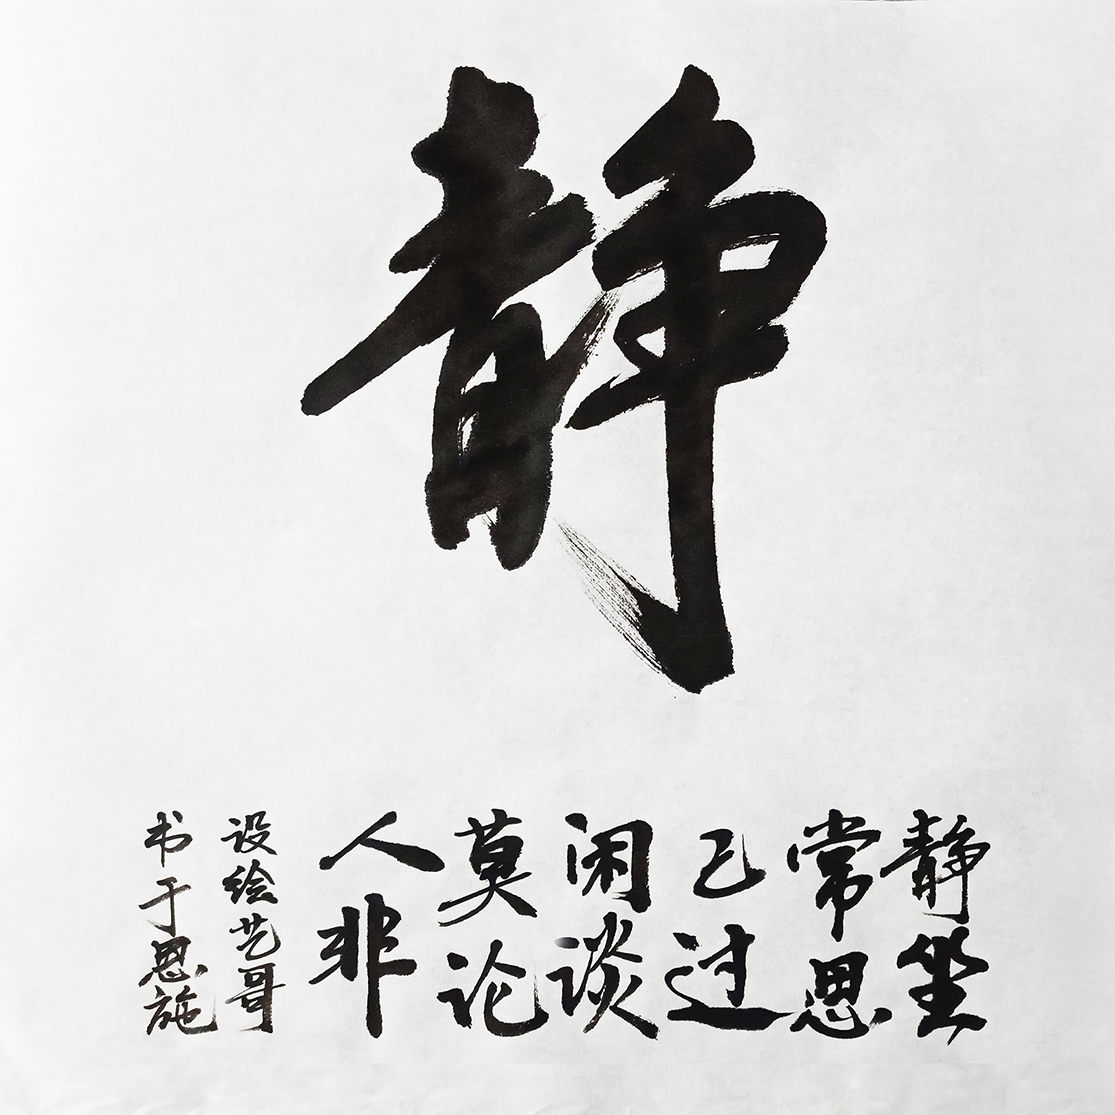 静
静坐
常思
己过
闲谈
莫论
人非
设绘艺哥
书于恩施